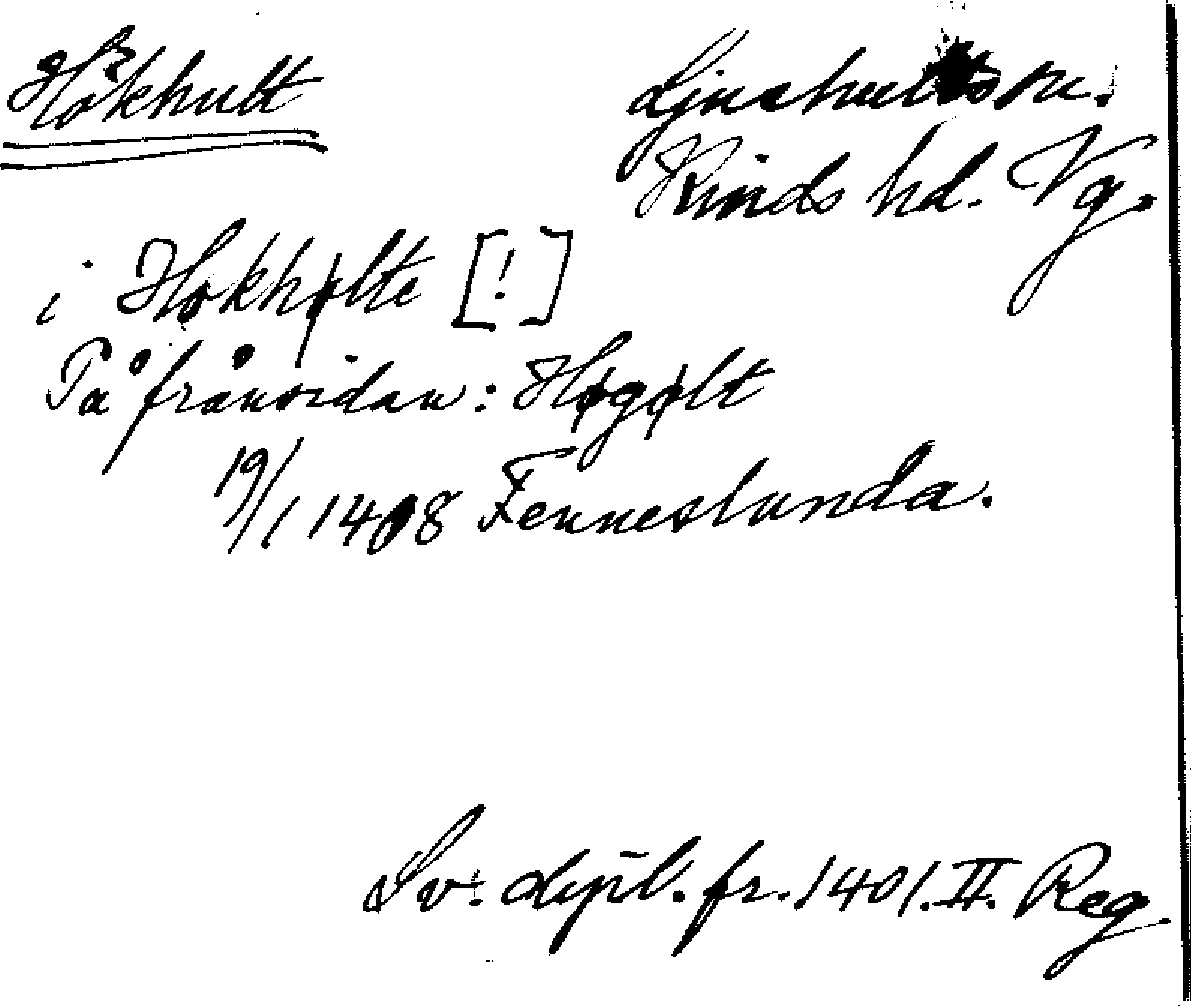 Hökhult
Ljushults sn.
Kinds hd. Vg.
i Høkhølte [!]
På frånsidan: Høgølt
19/1 1408 Fenneslunda.
Sv. dipl. fr. 1401. II. Reg.